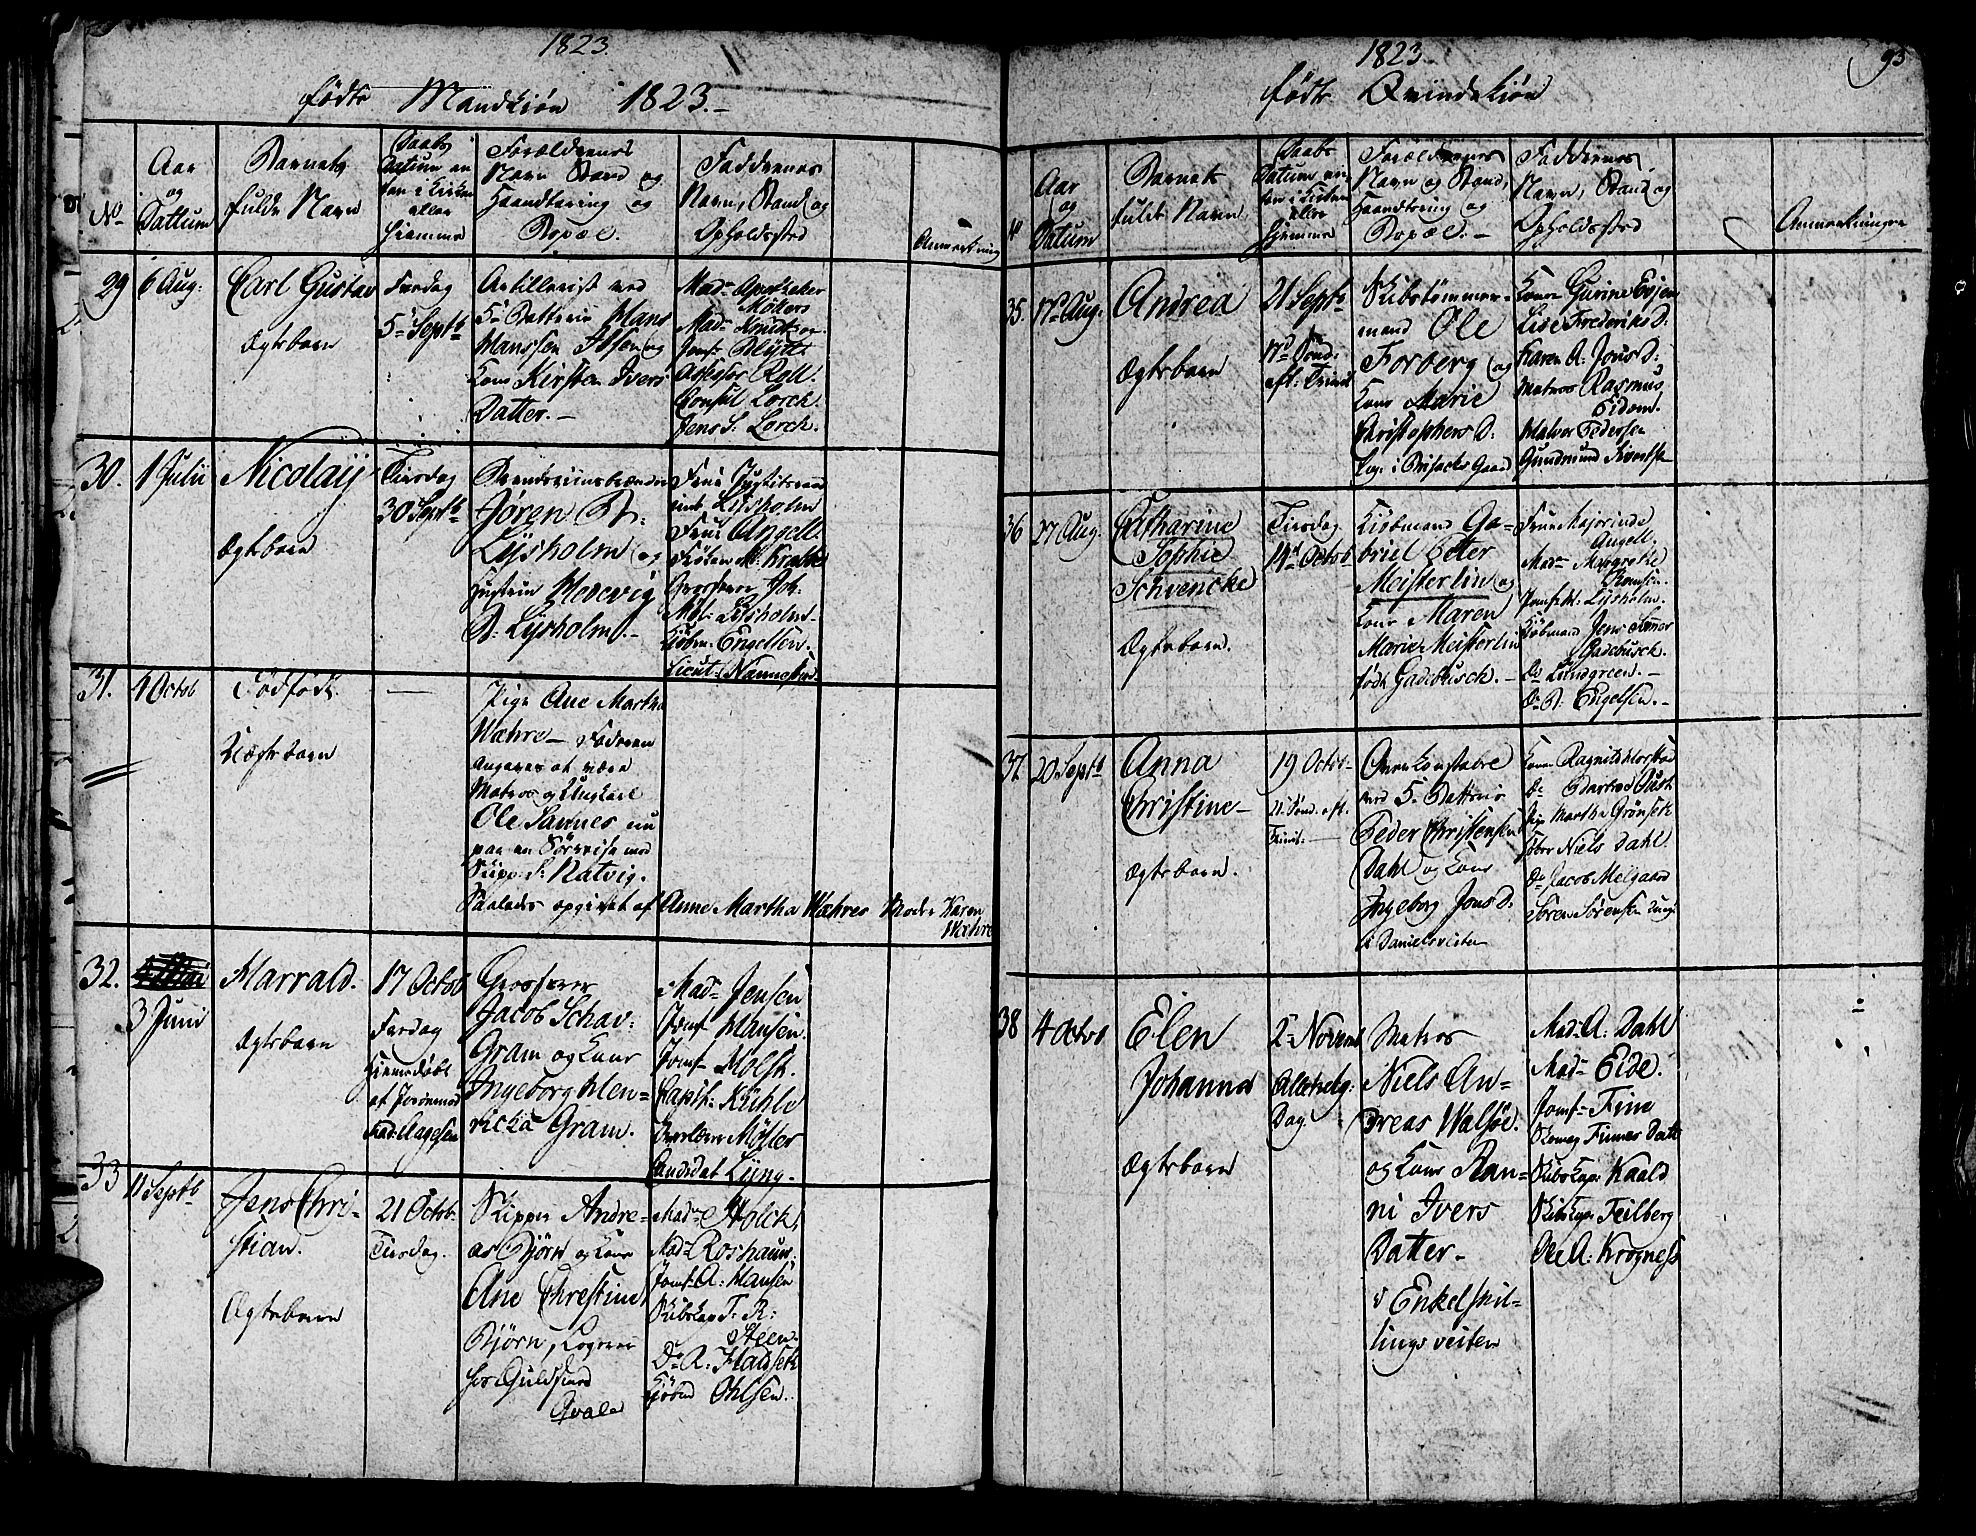 1823.
fødte Mandkiøn 1823.-
No
Aar
og
Dattum
Barnets
fulde Navn
Daabs
Datum en
ten i Kirken
eller
Hiemme
Forældrenes
Navn Stand og
Haandtæring og
Bopæl.
Faddernes
Navn, Stand og
Opholdssted
Anmerkning
29
6 Aug:
Carl Gustav
Ægtebarn
Fredag
5te Septb
Artillerist ved
5te Batterie Hans
Hanssen Ibsen og
Kone Kirsten Ivers
Datter.-
Mad= Apotheker
Møllers
Mad=
Jomf= Blÿtt.
Assessor Roll.
Consul Lorch.
Jens S: Lorch.
30.
1 Julii
Nicolaÿ
Ægtebarn
Tiersdag
30 Septb
Brændeviinsbrænder
Jøren B:
Lÿsholm og
Hustrue Hedevig
B: Lÿsholm.-
Frue Justitsraad
inde Lÿsholm
Frue Angell.
Frøken M: Krabbe
Grosserer Joh:
Mdl: Lÿsholm-
Kiøbm: Engelsen.
Lieut: Nannestad.
31.
4 Octob
Dødfødt.
Uægtebarn
Pige Ane Martha
Wæhre- Faderen
angives at være
Matros og Ungkarl
Ole Sannes nu
paa en Søereise med
Skipp: S: Natvig.
Saaledes opgivet af Anne Martha Wæhres Moder Karen
Wæhre
32.
3 Junii
Harrald.
Ægtebarn
17 Octob
Fredag
Hiemedøbt
af Jordemod
Mad: Aagesen
Grosserer
Jacob Schav-
Gram og Kone
Ingeborg Hen-
ricka Gram.
Mad= Jensen
Jomf Hansen.
Jomf= Møls.
Capit: Kühle
Overlærer Møller
Candidat Lÿng.
33
11 Septb
Jens Chri-
stian.
Ægtebarn
21 Octbr.
Tiersdag.
Skipper Andre-
as Bjørn og Kone
Ane Chrestine
Bjørn, Logerer
hos Guldsmed
Qvale
Mad= Holck
Mad= Roshauw.
Jomf= A: Hansen
Skibskap T: R:
Steen.
Do A: Haldseth
Ohlsen.
1823.
95
fødte Qvindekiøn
Aar
og
Datum
Barnets
fulde Navn
Daabs
Datum en
ten i Kirken
eller
hjemme
Forældrenes
Navn og Stand,
Haandtering og
Bopæl.-
Faddernes
Navn, Stand og
Opholdssted
Anmerkninger
35.
17de Aug:
Andrea
Ægtebarn
21 Septb
17de Sønd:
eft: Trinit
Skibstømmer-
mand Ole
Forberg og
Kone Marie
Christophers D:
Log: i Brisachs Gaard
Konen Gurine Evjen
Lise Frederiks D:
Karen A: Jons D:
Matros Rasmus
Eidem.
Halvor Pedersen
Gundmund
36
27 Aug:
Catharine
Sophie
Schvencke
Ægtebarn.
Tiersdag
14de Octob
Kiøbmand Ga-
briel Peter
Meisterlin og
Kone Maren
Marie Meisterlin
født Gadebusch.-
Frue Majorinde
Angell.
Mad= Margrethe
Jomf: M: Lÿsholm.
Kiøbmand Jens
Gadebusch.
Do Lundgreen.-
Do B: Engelsen.-
37
20 Septb
Anna
Christine-
Ægtebarn.
19 Octob-
21 Sønd. eft.
Trinit:
Overkonstabel
ved 5te Batterie
Peder Christensen
Dahl og Kone
Ingeborg Jons D:
i Danielsveiten
Konen Ragnild
Do
Pig Martha Grønseth
Niels Dahl.
Do Jacob Melgaard
Søren Sørensen
38
4 Octob
Elen
Johanna
Ægtebarn
2de Novemb
Allehelg:
Dag.
Matros
Niels An-
dreas Walsøe.
og Kone Ran-
ni Ivers
Datter-
i Enkelskil-
lings veiten
Mad= A: Dahl
Mad= Eide.
Jomf= Fine
Finnes Datt
Skibskap: Kaald
Skibskap: Feilberg
Ole A: Krogness